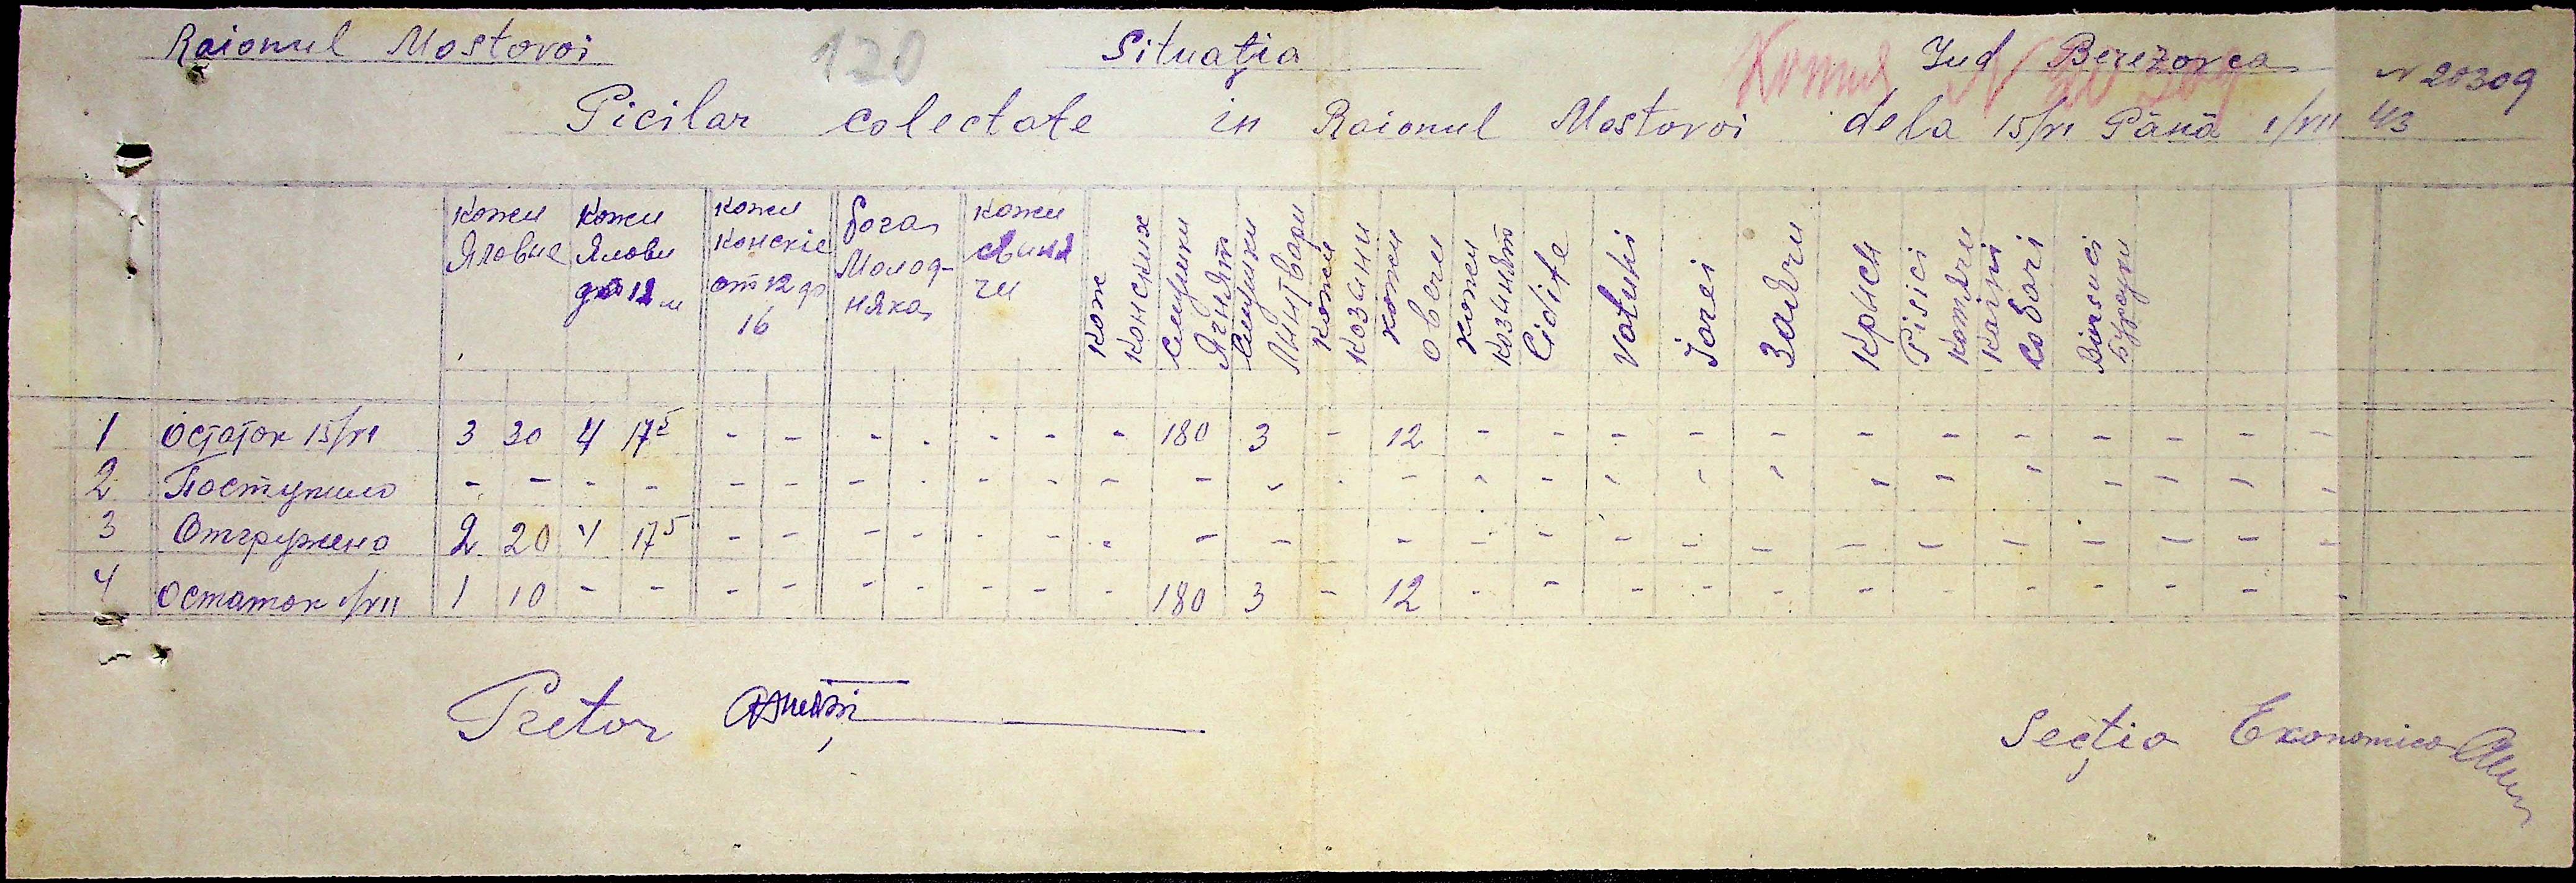 Raionul Mostovoi 120 Situația Jud Berezovca N 20309
Picilar colectate in Raionul Mostovoi dela 15/VI Pănă 1/VII 43
кожи Яловые
кожи Ялови до 12 м
кожи конскіе от 12 до 16
бога Молодняка
кожи свиначи
кож конских
смушки Ягнят
смушки Линтвари
кожи козини
кожи овечи
кожи козинят
Eidite
Vatuhi
Jorei
Заячи
Крыси
Pisici котячи
Kaini Собачі
1 Остаток 15/VI 3 30 4 17⁵ - - - - - - - 180 3 - 12 - - - - - - - - - - - -
2 Поступило - - - - - - - - - - - - - - - - - - - - - - - - - - -
3 Отгружено 2 20 4 17⁵ - - - - - - - - - - - - - - - - - - - - - -
4 Остаток 1/VII 1 10 - - - - - - - - - 180 3 - 12 - - - - - - - - - - - -
Pretor
Secția Economica